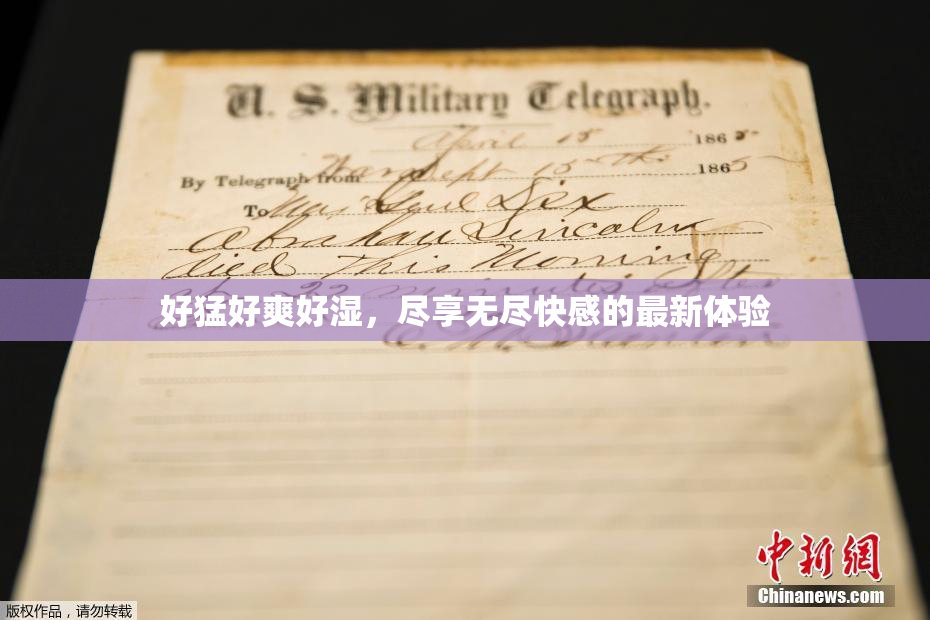 U. S. Military Telegraph.
April 15 1865
By Telegraph from War Dept 15th 1865
To Maj Genl Dix
Abraham Lincoln
died This Morning
22 minutes after
好猛好爽好湿，尽享无尽快感的最新体验
E. M. Stanton
中新網
Chinanews.com
版权作品，请勿转载